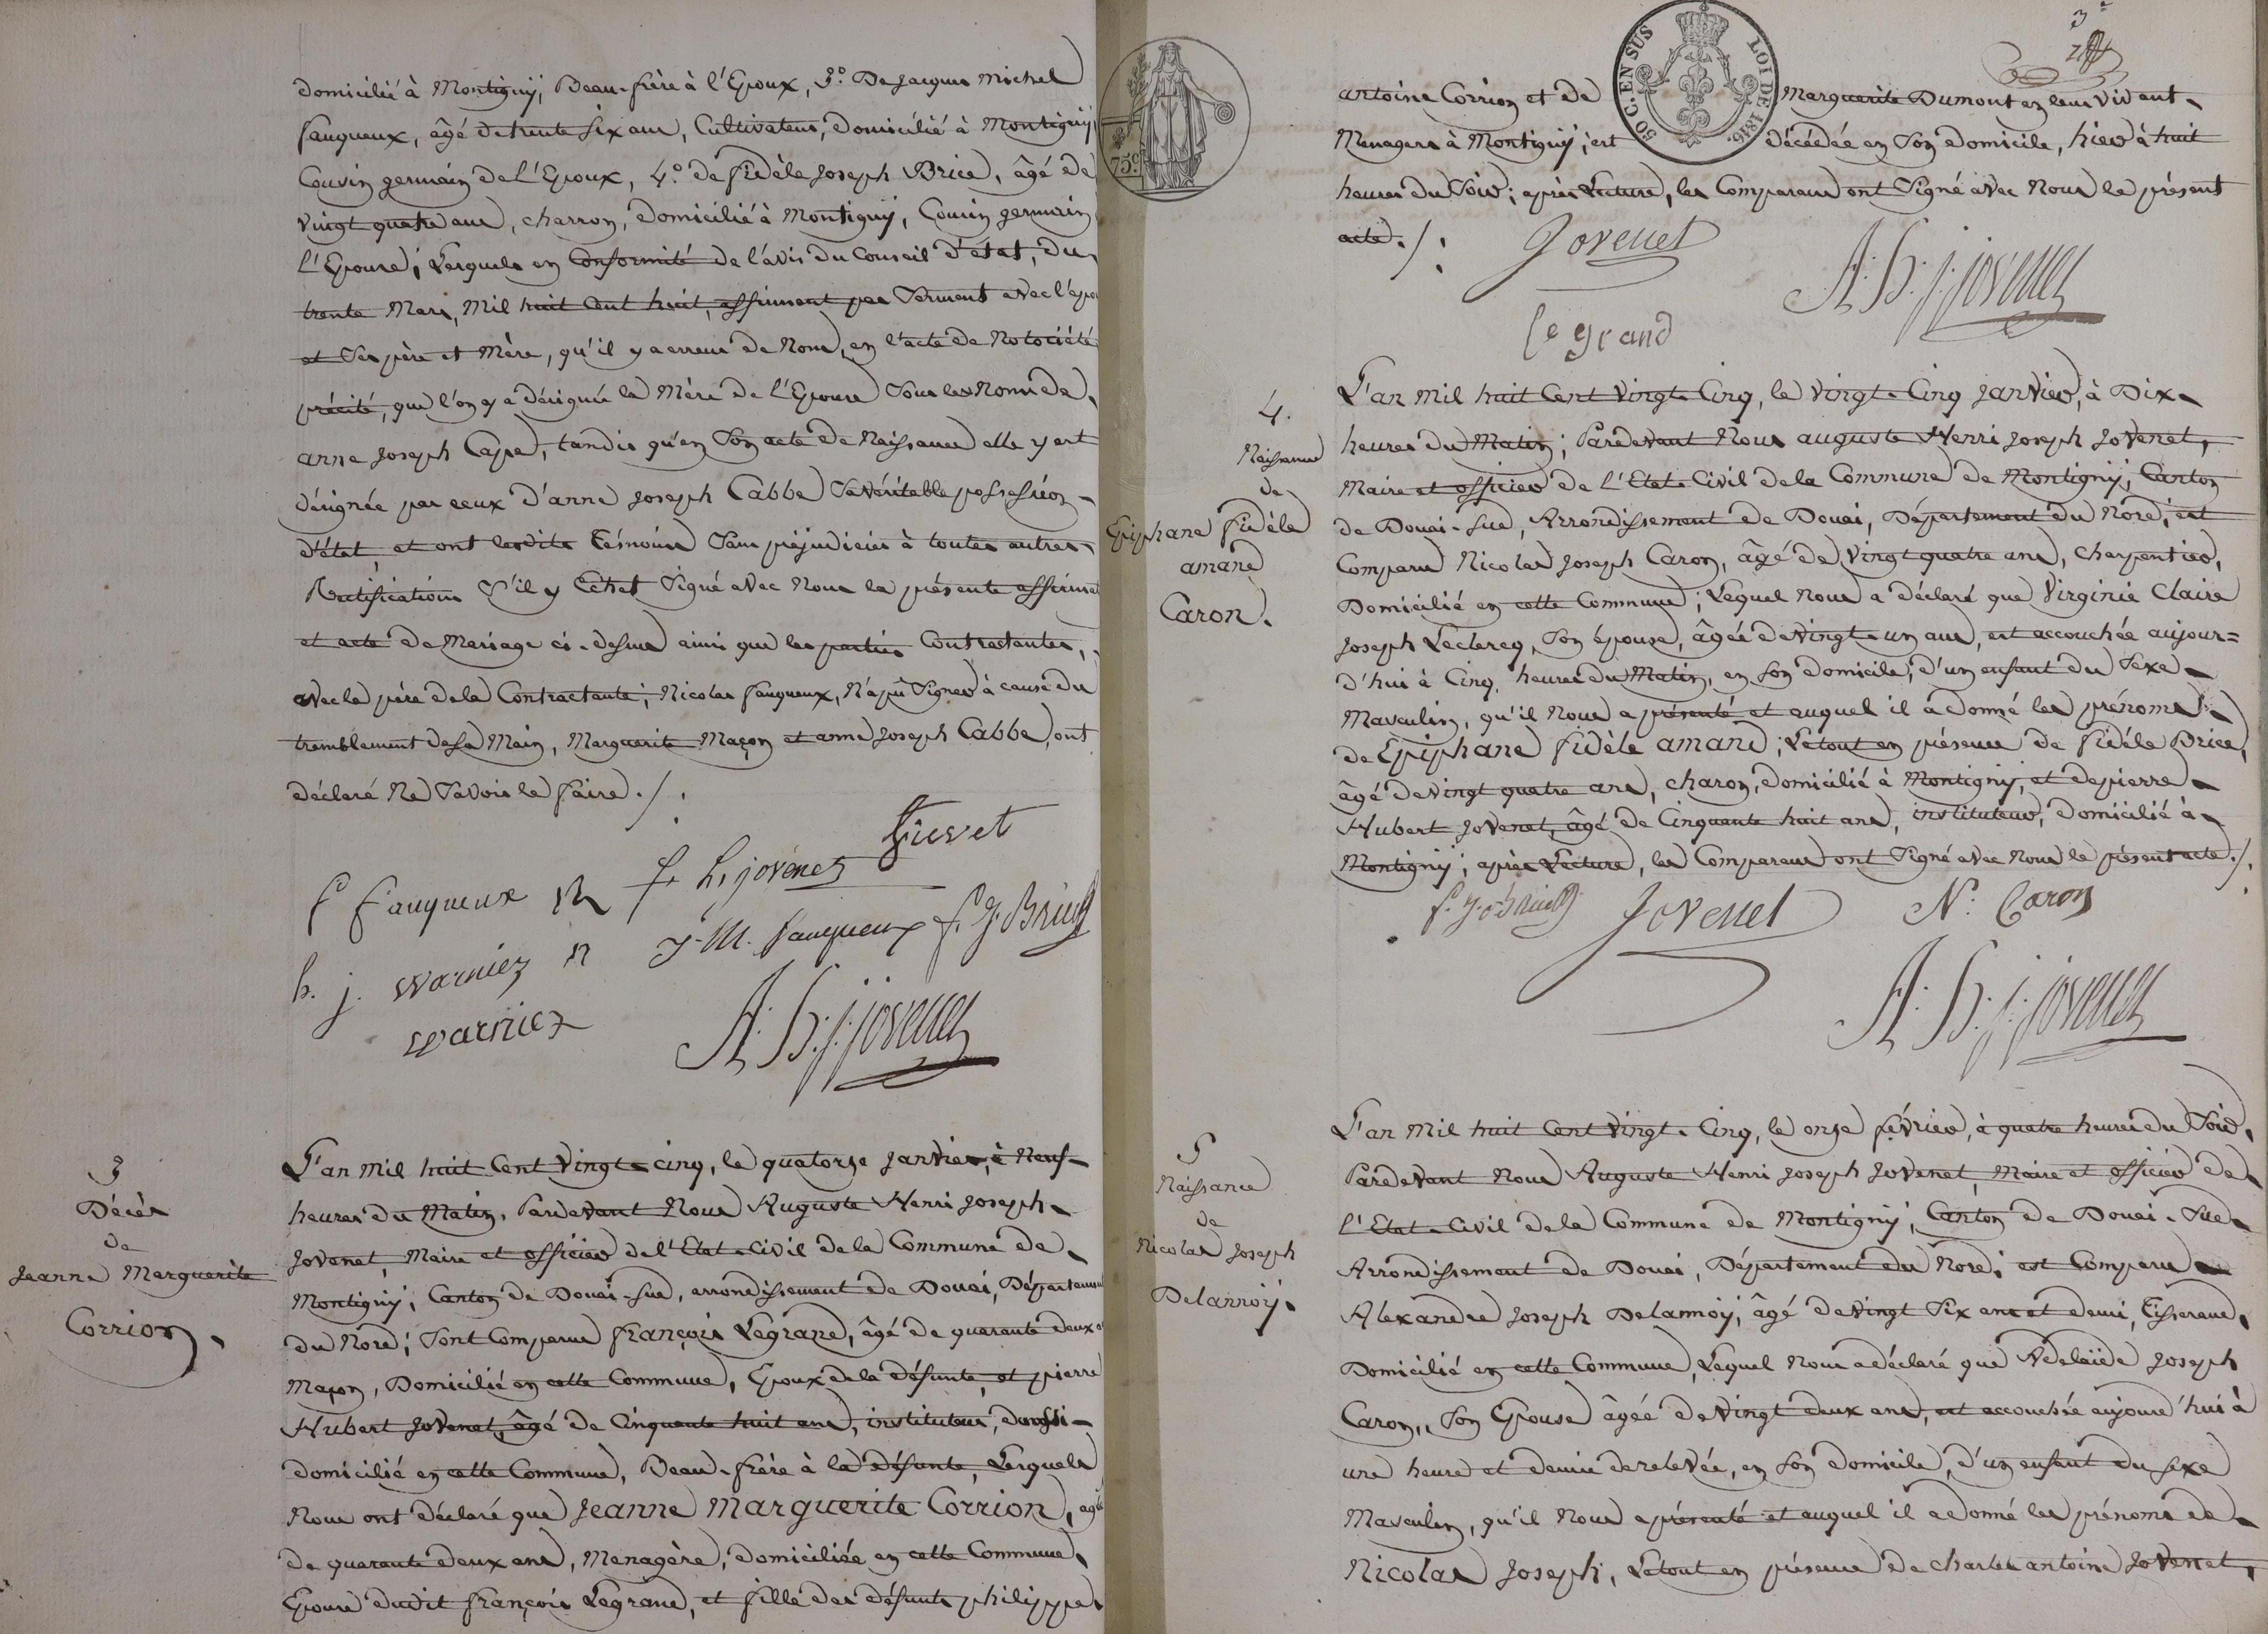 domicilié à Montigny, Beau-frère à l'Epoux, 3.° De Jacques Michel
fauqueux, âgé de trente six ans, Cultivateur, domicilié à Montigny,
Cousin germain de l'Epoux, 4.° de fidèle Joseph Brice, âgé de
vingt quatre ans, charron, domicilié à Montigny, Cousin germain
l'Epouse; Lesquels en Conformité de l'avis du Conseil d'état, du
trente Mars, Mil huit Cent huit, affirment par Serment avec l'épo
et Ses père et Mère, qu'il y a erreur de Noms, en l'acte de Notoriété
précité, que l'on y a désignée la Mère de l'Epouse Sous les Noms de
anne Joseph Cape, tandis qu'en Son acte de Naissance elle y est
désignée par ceux d'anne Joseph Cabbe Sa véritable possession
d'état, et ont lesdits témoins Sans préjudicier à toutes autres
Rectifications S'il y Echet Signé avec Nous la présente affirmat
et acte de Mariage ci-dessus ainsi que les parties Contractantes,
avec le père de la Contractante; Nicolas fauqueux, N'a pû Signer à cause du
tremblement de Sa Main, Marguerite Maçon et anne Joseph Cabbe, ont
déclaré Ne Savoir le faire ./.
f fauqueux
h. jovenez
J-M. fauqueux
f. J. Brice
h. j. warniez
warniez
A: H: j: jovenez
3
Décès
de
Jeanne Marguerite
Corrion.
L'an Mil huit Cent Vingt-cinq, le quatorze Janvier, à Neuf
heures du Matin, Pardevant Nous Auguste Henri Joseph
Jovenet, Maire et officier de l'Etat-Civil de la Commune de
Montigny, Canton de Douai-sud, arrondissement de Douai, Département
du Nord; Sont Comparus françois Legrand, âgé de quarante deux a
Maçon, Domicilié en cette Commune, Epoux de la défunte, et pierre
Hubert Jovenet, âgé de Cinquante huit ans, instituteur, aussi
domicilié en cette Commune, Beau-frère à la défunte, Lesquels
Nous ont déclaré que Jeanne Marguerite Corrion, agée
de quarante deux ans, Menagère, domiciliée en cette Commune,
Epouse dudit françois Legrand, et fille des défunts philippe
3e
antoine Corrion et de Marguerite Dumont en leur Vivant
Menagers à Montigny, est décédée en Son domicile, hier à huit
heures du Soir; après Lecture, les Comparans ont Signé avec Nous le présent
acte ./.
50 C. EN SUS LOI DE 1816.
75c
Jovenet
A: H: j: jovenez
le grand
4.
Naissance
de
Epiphane fidèle
amand
Caron.
L'an Mil huit Cent Vingt-Cinq, le Vingt-Cinq Janvier, à Dix
heures du Matin; Pardevant Nous auguste Henri Joseph Jovenet,
Maire et officier de l'Etat-Civil de la Commune de Montigny, Canton
de Douai-Sud, Arrondissement de Douai, Département du Nord, est
Comparu Nicolas Joseph Caron, âgé de Vingt quatre ans, Charpentier,
Domicilié en cette Commune; Lequel Nous a déclaré que Virginie Claire
Joseph Leclercq, Son épouse, âgée de vingt-un ans, est accouchée aujour=
d'hui à Cinq heures du Matin, en Son domicile, d'un enfant du Sexe
Masculin, qu'il Nous a présenté et auquel il a donné les prénoms
de Epiphane fidèle amand; Le tout en présence de fidèle Brice,
âgé de vingt quatre ans, charon, domicilié à Montigny, et de pierre
Hubert Jovenet, âgé de Cinquante huit ans, instituteur, domicilié à
Montigny; après Lecture, les Comparans ont Signé avec Nous le présent acte ./.
f. J. Brice
Jovenet
N. Caron
A: H: j: jovenez
5
Naissance
de
Nicolas Joseph
Delannoy.
L'an Mil huit Cent Vingt-Cinq, le onze février, à quatre heures du Soir,
Pardevant Nous Auguste Henri Joseph Jovenet, Maire et officier de
l'Etat-Civil de la Commune de Montigny, Canton de Douai-Sud
Arrondissement de Douai, Département du Nord; est Comparu
Alexandre Joseph Delannoy, âgé de vingt Six ans et demi, Tisserand,
Domicilié en cette Commune, Lequel Nous a déclaré que Adelaïde Joseph
Caron, Son Epouse âgée de Vingt deux ans, est accouchée aujourd'hui à
une heure et demie de relevée, en Son domicile, d'un enfant du sexe
Masculin, qu'il Nous a présenté et auquel il a donné les prénoms de
Nicolas Joseph, Le tout en présence de charles antoine Jovenet,